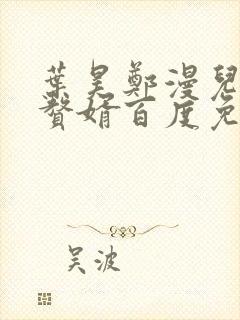 葉昊鄭漫兒
贅婿百度免
吴波